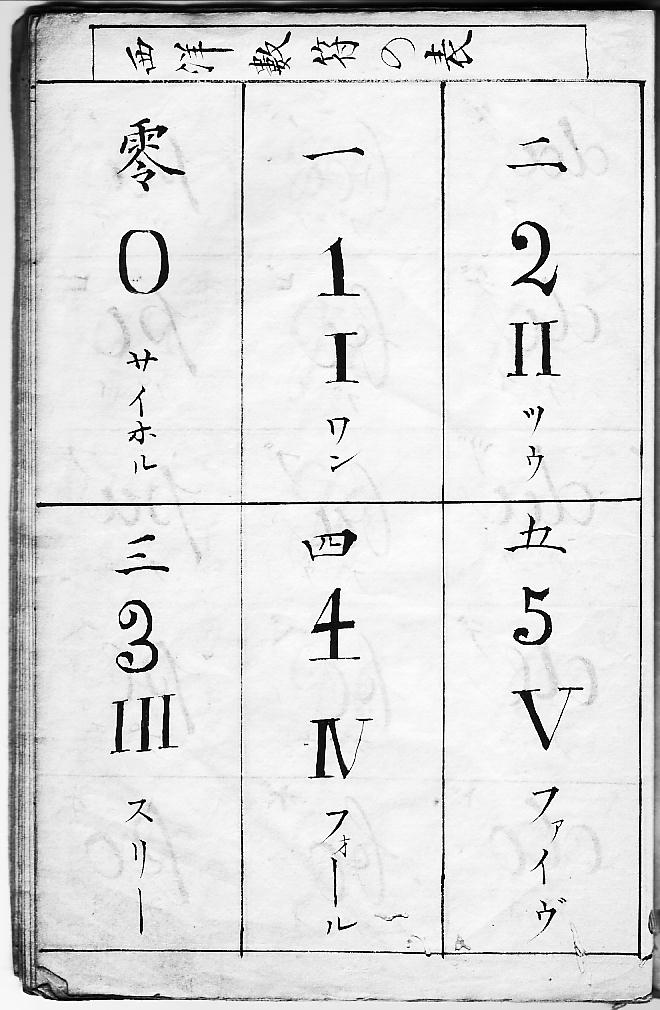 西洋數符の表
零
0
サイホル
一
1
I
ワン
二
2
II
ツウ
三
3
III
スリー
四
4
IV
フォール
五
5
V
ファイヴ